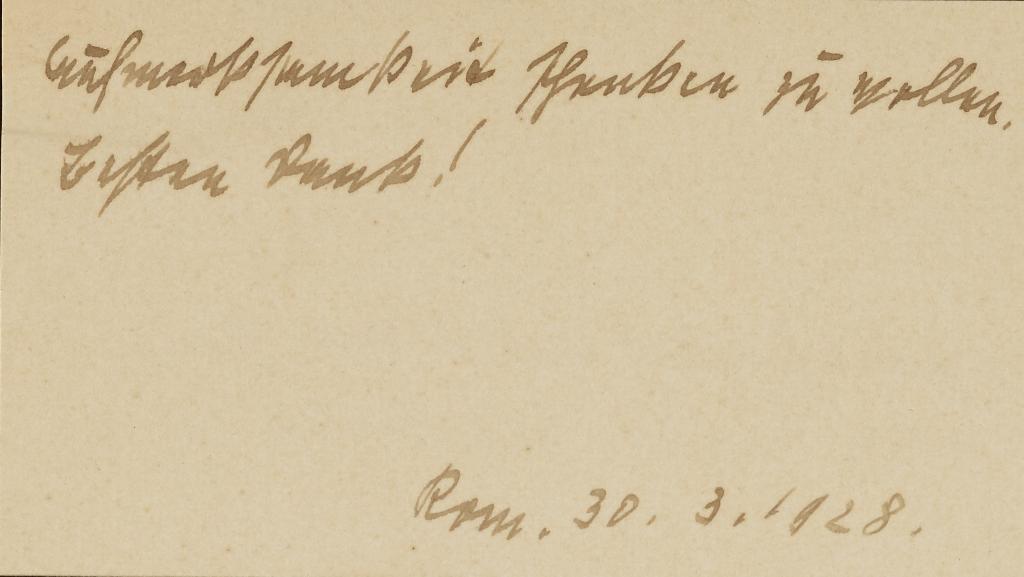 Aufmerksamkeit schenken zu wollen.
Besten Dank!
Rom. 30. 3. 1928.